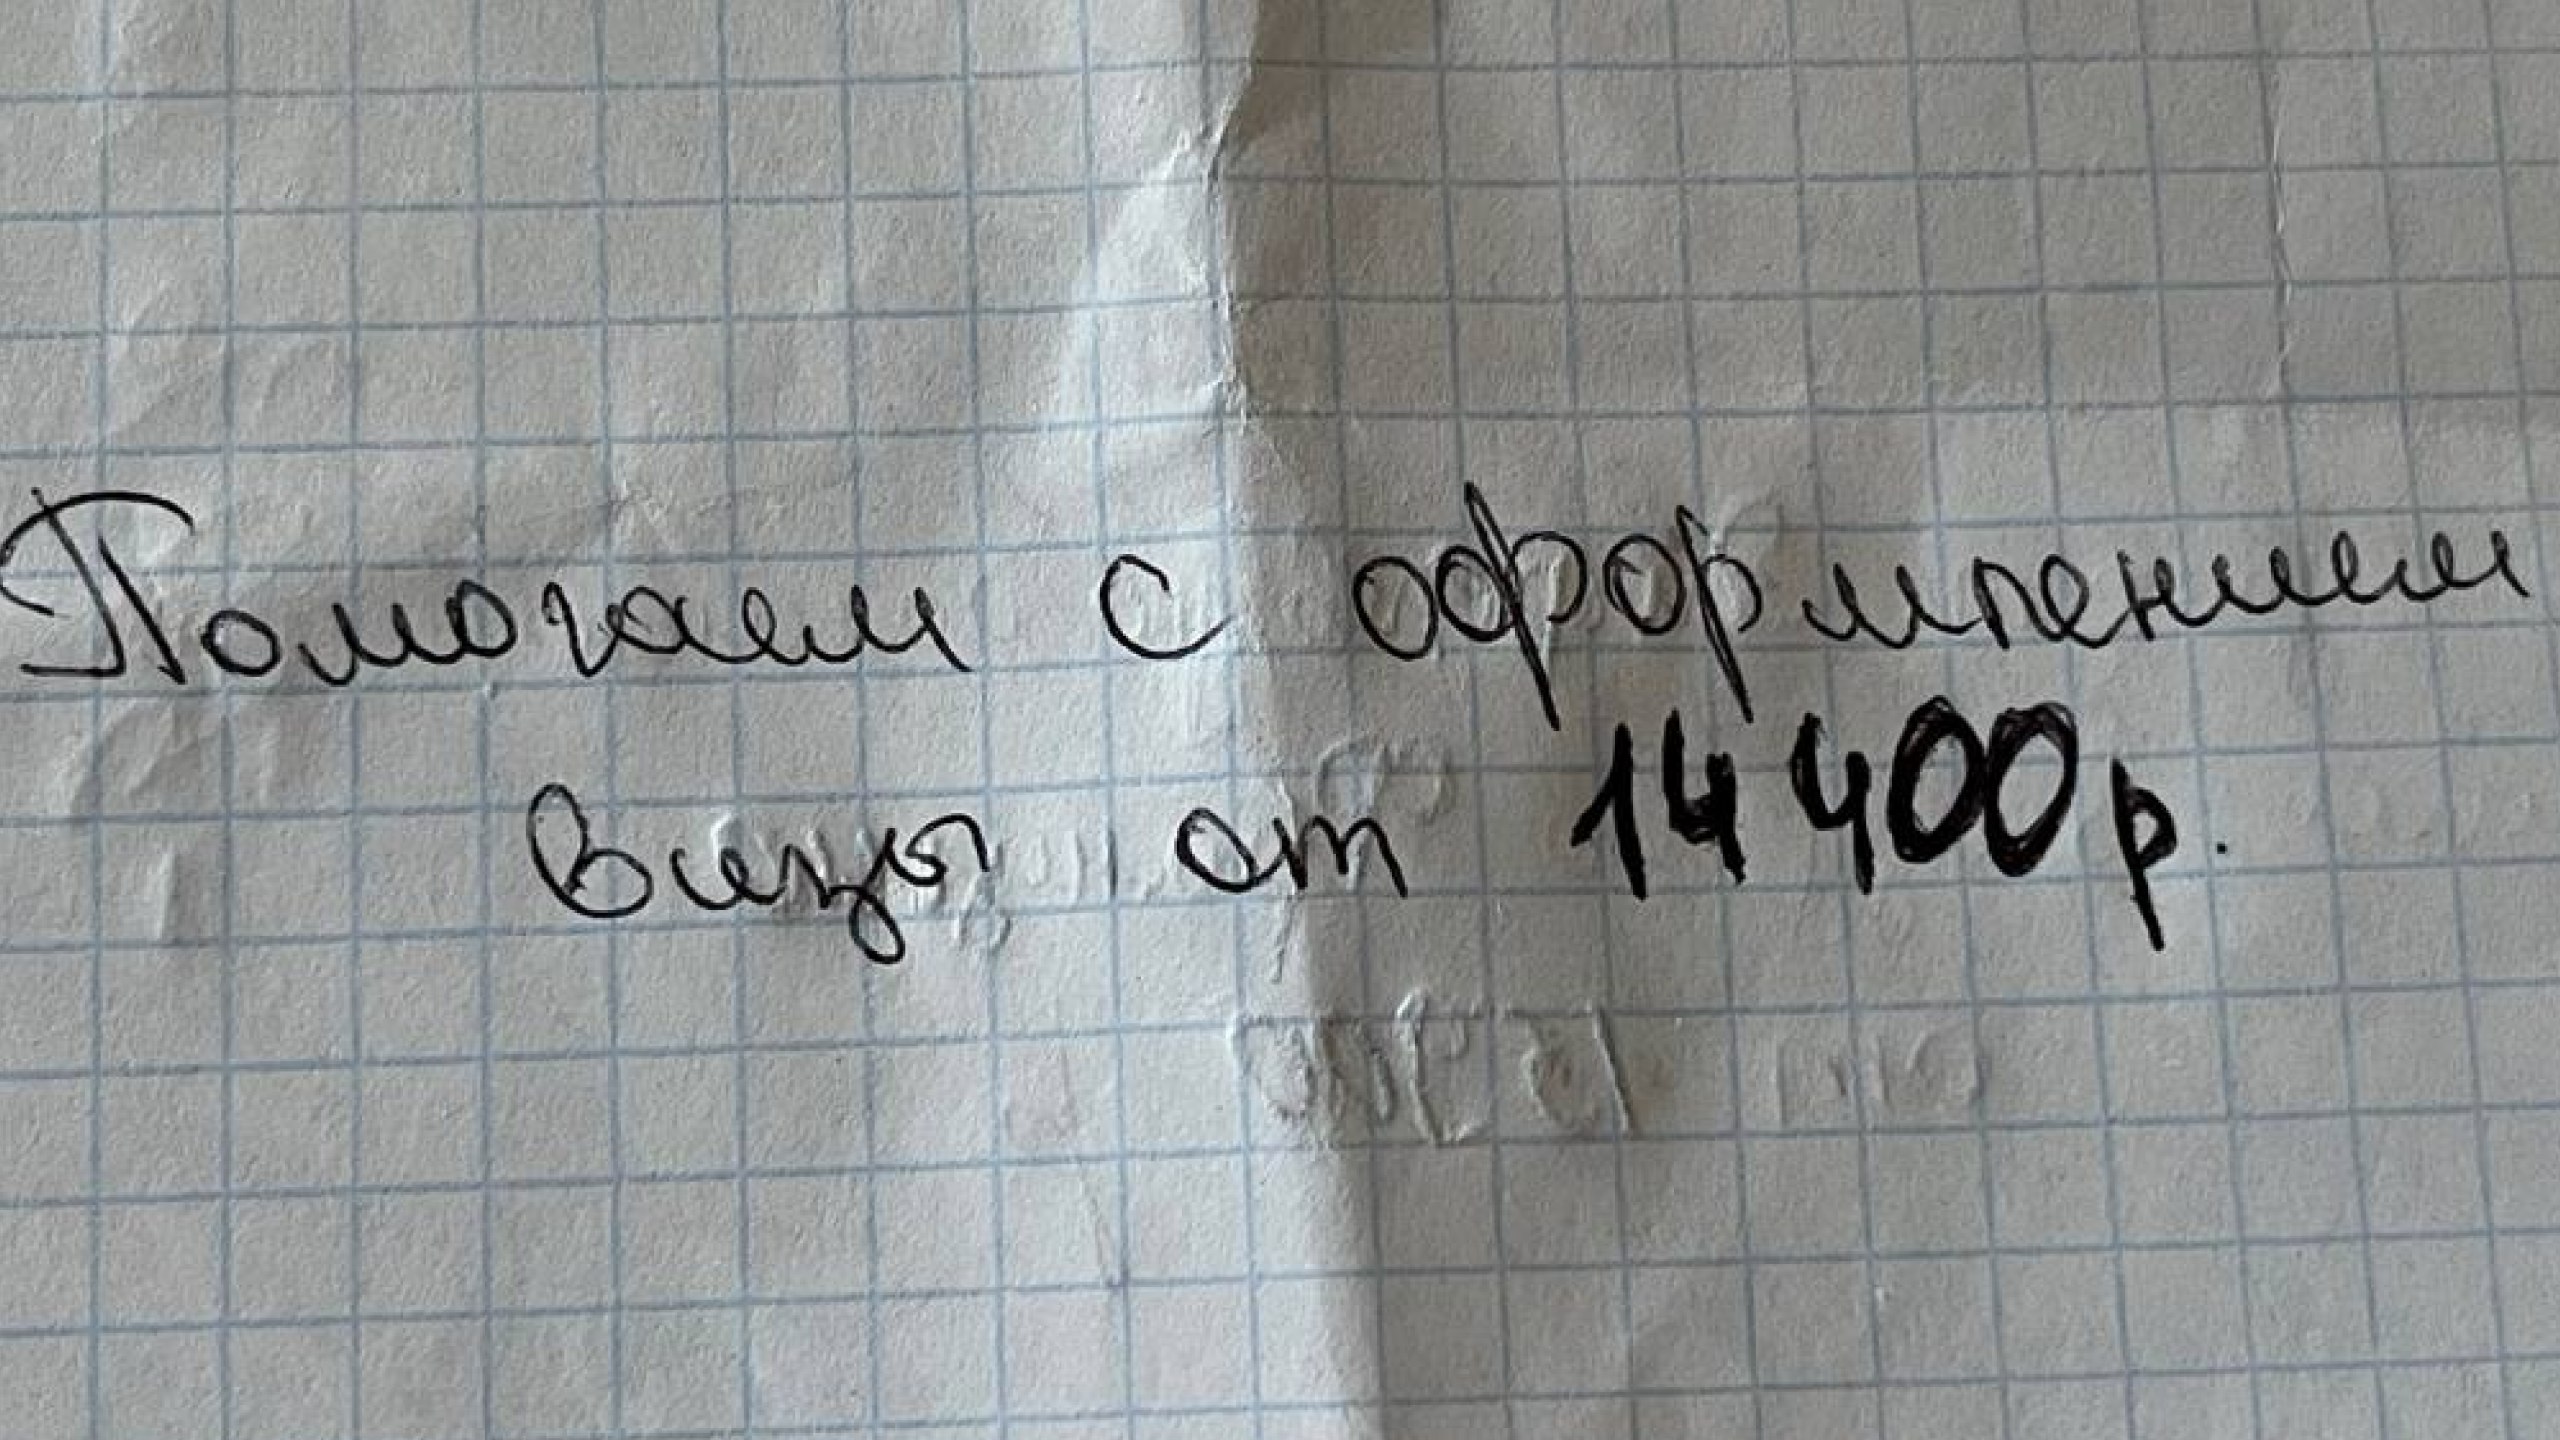 Помогаем с оформлением
визы от 14 400 р.